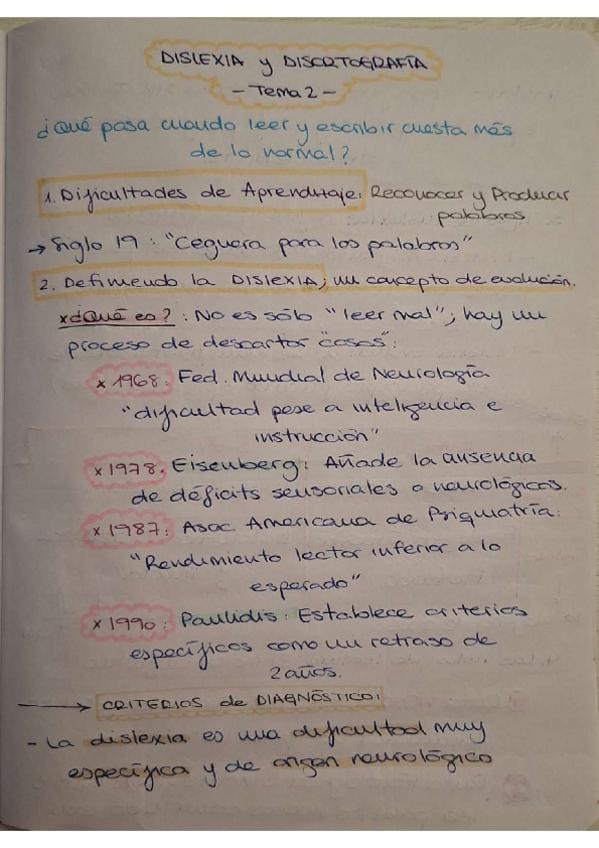 DISLEXIA y DISORTOGRAFÍA
- Tema 2 -
¿Qué pasa cuando leer y escribir cuesta más
de lo normal?
1. Dificultades de Aprendizaje: Reconocer y Producir
palabras
→ Siglo 19: "Ceguera para las palabras"
2. Definiendo la DISLEXIA; un concepto de evolución.
x ¿Qué es?: No es sólo "leer mal"; hay un
proceso de descartar "cosas":
x 1968: Fed. Mundial de Neurología
"dificultad pese a inteligencia e
instrucción"
x 1978. Eisenberg: Añade la ausencia
de déficits sensoriales o neurológicos.
x 1987: Asoc. Americana de Psiquiatría:
"Rendimiento lector inferior a lo
esperado"
x 1990: Paulidis: Establece criterios
específicos como un retraso de
2 años.
→ CRITERIOS de DIAGNÓSTICO:
- La dislexia es una dificultad muy
específica y de origen neurológico